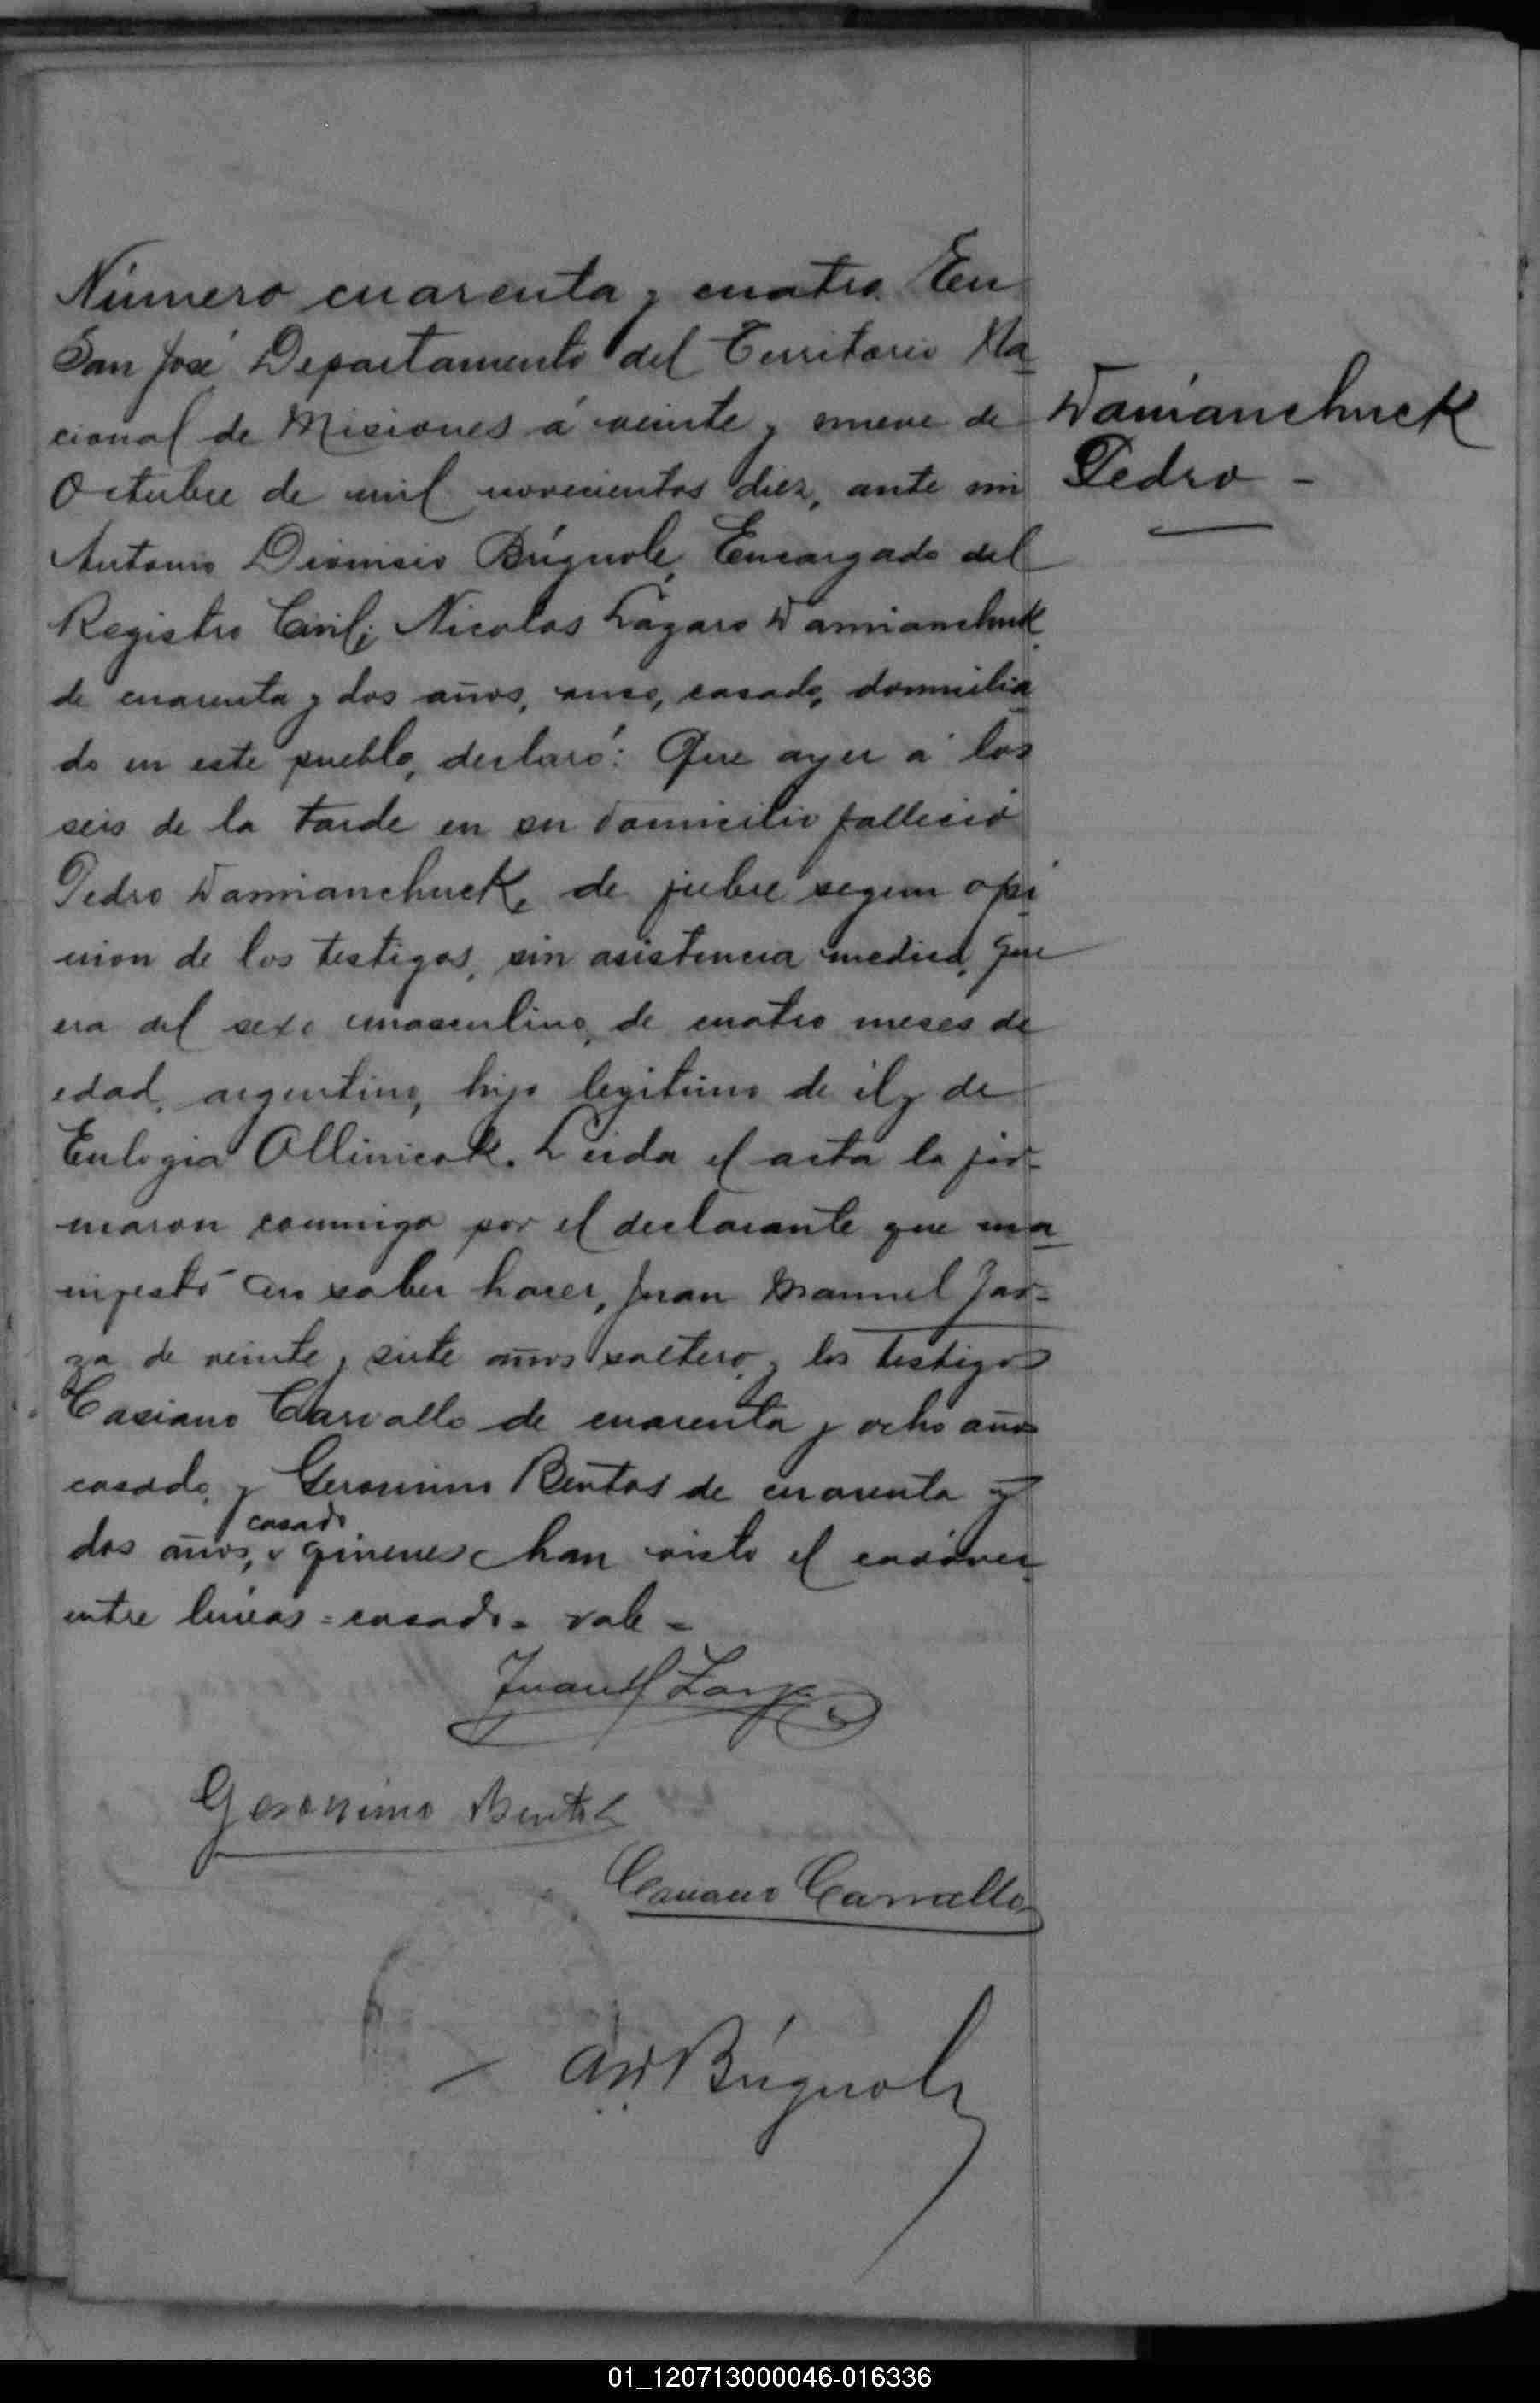 Número cuarenta y cuatro. En
San José Departamento del Territorio Na
cional de Misiones á veinte y nueve de
Octubre de mil novecientos diez, ante mi
Antonio Dionisio Búgnole, Encargado del
Registro Civil; Nicolas Lázaro Damianchuck
de cuarenta y dos años, ruso, casado, domicilia
do en este pueblo, declaró: Que ayer á las
seis de la tarde en su domicilio falleció
Pedro Damianchuck, de fiebre segun opi
nion de los testigos, sin asistencia medica, que
era del sexo masculino, de cuatro meses de
edad, argentino, hijo legitimo de él y de
Eulogia Ollinicok. Leida el acta la fir-
maron conmigo por el declarante que ma
nifestó no saber hacer, Juan Manuel Zar-
za de veinte y siete años soltero, y los testigos
Casiano Carvallo de cuarenta y ocho años
casado, y Geronimo Bentos de cuarenta y
casado
dos años, quienes han visto el cadáver
entre lineas = casado = vale =
Juan M Zarza
Geronimo Bentos
Casiano Carvallo
AD Búgnole
Damianchuck
Pedro -
01_120713000046-016336